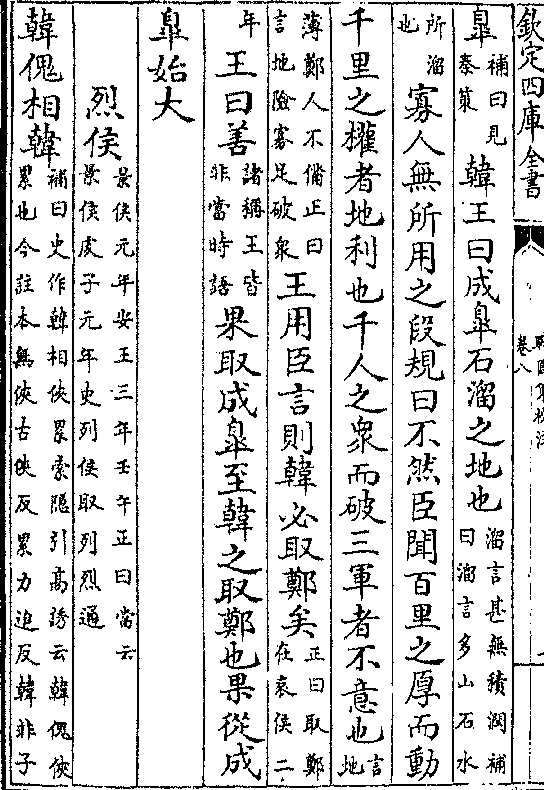 欽定四庫全書
卷八
臯補曰見秦策韓王曰成臯石溜之地也溜言甚無積潤補曰溜言多山石水
所溜也寡人無所用之段規曰不然臣聞百里之厚而動
千里之權者地利也千人之衆而破三軍者不意也言地
薄鄭人不備正曰言地險寡足破衆王用臣言則韓必取鄭矣正曰取鄭在哀侯二
年王曰善諸稱王皆非當時語果取成臯至韓之取鄭也果從成
臯始大
烈侯景侯元年安王三年壬午正曰當云景侯虔子元年史列侯取列烈通
韓傀相韓補曰史作韓相俠累索隱引高誘云韓傀俠累也今註本無俠古俠反累力追反韓非子